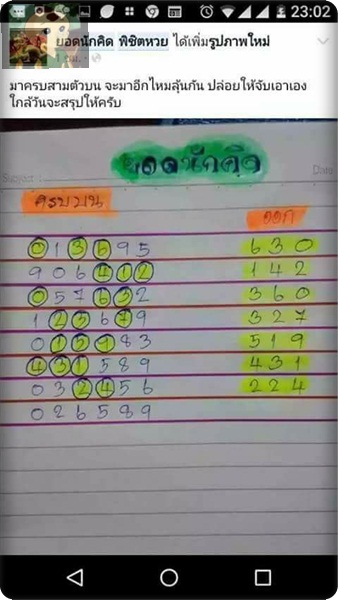 23:02
ยอดนักคิด พิชิตหวย ได้เพิ่มรูปภาพใหม่
1 ชม.
มาครบสามตัวบน จะมาอีกไหมลุ้นกัน ปล่อยให้จับเอาเอง
ใกล้วันจะสรุปให้ครับ
ยอดนักคิด
Subject : Date
ครบบน ออก
0 1 3 6 9 5 6 3 0
9 0 6 4 1 2 1 4 2
0 5 7 6 3 2 3 6 0
1 2 3 6 7 9 3 2 7
0 1 5 9 8 3 5 1 9
4 3 1 5 8 9 4 3 1
0 3 2 4 5 6 2 2 4
0 2 6 5 8 9